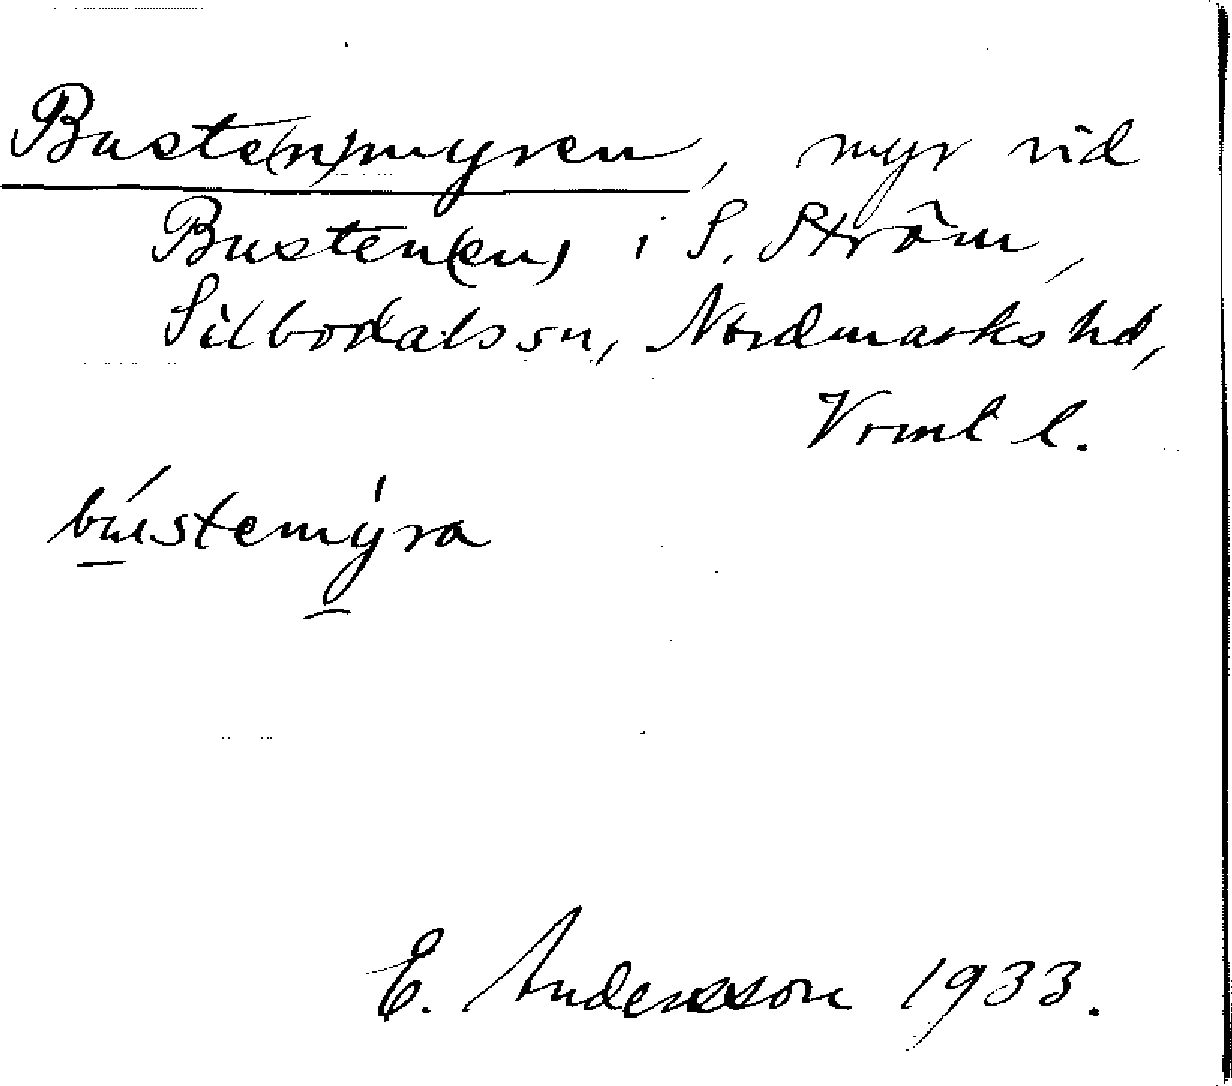 Buste(n)myren, myr vid
Busten(en) i S. Ström,
Silbodals sn, Nordmarks hd,
Vrml l.
bústemýra
E. Andersson 1933.